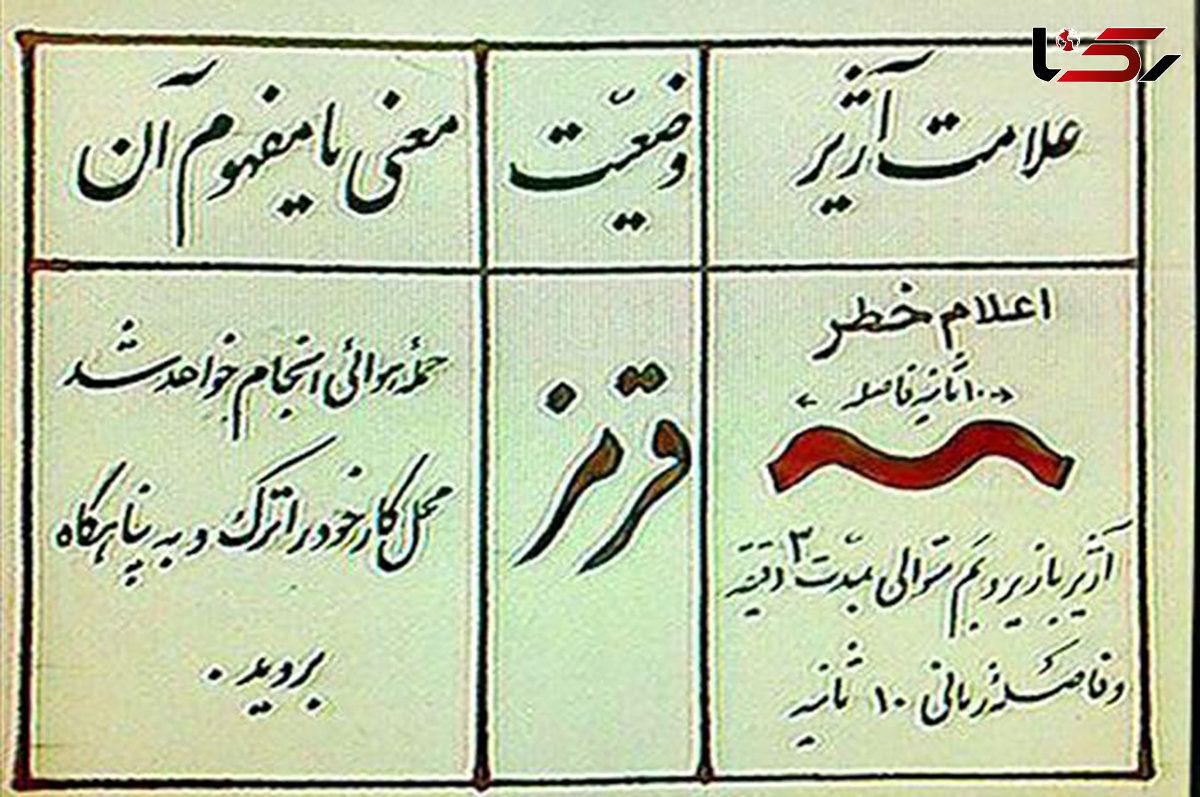 رکنا
علامت آژیر
وضعیّت
معنی یا مفهوم آن
اعلام خطر
۱۰ ثانیه فاصله
آژیر با زیر و بم متوالی بمدّت ۳ دقیقه
و فاصلهٔ زمانی ۱۰ ثانیه
قرمز
حملهٔ هوائی انجام خواهد شد
محل کار خود را ترک و به پناهگاه
بروید.